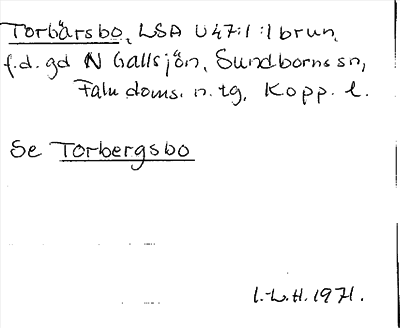 Torbärsbo, LSA U47:1:1 brun,
f.d. gd N Gallsjön, Sundborns sn,
Falu doms. n. tg, Kopp. l.
Se Torbergsbo
I.-L.H. 1971.